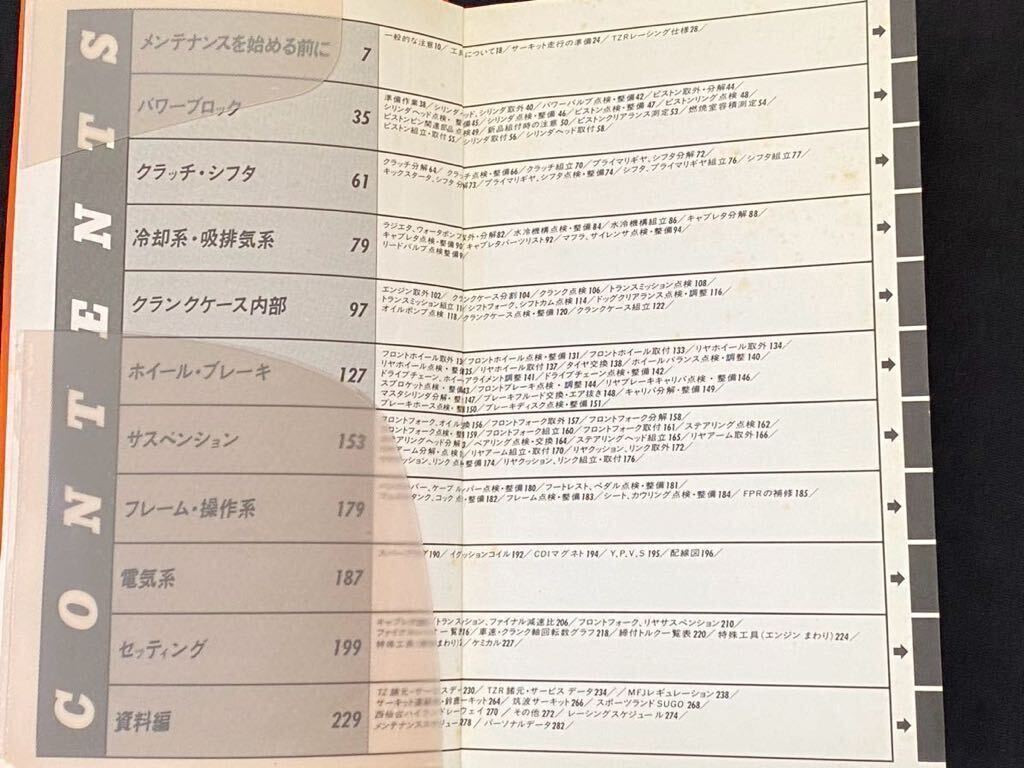 CONTENTS
メンテナンスを始める前に 7
一般的な注意10/ 工具について18/サーキット走行の準備24/ TZRレーシング仕様28/
パワーブロック 35
準備作業38/シリンダヘッド、シリンダ取外40/パワーバルブ点検・整備42/ピストン取外・分解44/
シリンダヘッド点検・整備45/シリンダ点検・整備46/ピストン点検・整備47/ピストンリング点検48/
ピストンピン関連部品点検49/新品組付時の注意50/ピストンクリアランス測定53/燃焼室容積測定54/
ピストン組立・取付55/シリンダ取付56/シリンダヘッド取付58/
クラッチ・シフタ 61
クラッチ分解64/クラッチ点検・整備66/クラッチ組立70/プライマリギヤ、シフタ分解72/
キックスタータ、シフタ分解73/プライマリギヤ、シフタ点検・整備74/シフタ、プライマリギヤ組立76/シフタ組立77/
冷却系・吸排気系 79
ラジエタ、ウォータポンプ取外・分解82/水冷機構点検・整備84/水冷機構組立86/キャブレタ分解88/
キャブレタ点検・整備90/キャブレタパーツリスト92/マフラ、サイレンサ点検・整備94/
リードバルブ点検整備9
クランクケース内部 97
エンジン取外102/ クランクケース分割104/クランク点検106/トランスミッション点検108/
トランスミッション組立11 /シフトフォーク、シフトカム点検114/ドッグクリアランス点検・調整116/
オイルポンプ点検118/クランクケース点検・整備120/クランクケース組立122/
ホイール・ブレーキ 127
フロントホイール取外13 /フロントホイール点検・整備131/フロントホイール取付133/リヤホイール取外134/
リヤホイール点検・整備35/リヤホイール取付137/タイヤ交換138/ホイールバランス点検・調整140/
ドライブチェーン、ホイールアライメント調整141/ドライブチェーン点検・整備142/
スプロケット点検・整備43/フロントブレーキ点検・調整144/リヤブレーキキャリパ点検・整備146/
マスタシリンダ分解・整147/ブレーキフルード交換・エア抜き148/キャリパ分解・整備149/
ブレーキホース点検・整150/ブレーキディスク点検・整備151/
サスペンション 153
フロントフォーク、オイル交換156/フロントフォーク取外157/フロントフォーク分解158/
フロントフォーク点検・整159/フロントフォーク組立160/フロントフォーク取付161/ステアリング点検162/
ステアリングヘッド分解 /ベアリング点検・交換164/ステアリングヘッド組立165/リヤアーム取外166/
リヤアーム分解・点検 /リヤアーム組立・取付170/リヤクッション、リンク取外172/
クッション、リンク点検・整備174/リヤクッション、リンク組立・取付176/
フレーム・操作系 179
レバー、ケーブルレバー点検・整備180/フートレスト、ペダル点検・整備181/
タンク、コック点・整備182/フレーム点検・整備183/シート、カウリング点検・整備184/ FPRの補修185/
電気系 187
スパークプラグ190/イグニッションコイル192/CDIマグネト194/ Y,P,V,S 195/配線図196/
セッティング 199
キャブレタ /トランスミッション、ファイナル減速比206/フロントフォーク、リヤサスペンション210/
ファイナル 一覧表16/車速・クランク軸回転数グラフ218/締付トルク一覧表220/特殊工具(エンジン まわり)224/
特殊工具( まわり) /ケミカル227/
資料編 229
TZ諸元・サービスデータ230/ TZR諸元・サービス データ234/ /MFJレギュレーション238/
サーキット ・鈴鹿サーキット264/筑波サーキット266/スポーツランドSUGO268/
西仙台ハイランドレーウェイ270/その他272/レーシングスケジュール274/
メンテナンススケジュール278/パーソナルデータ282/